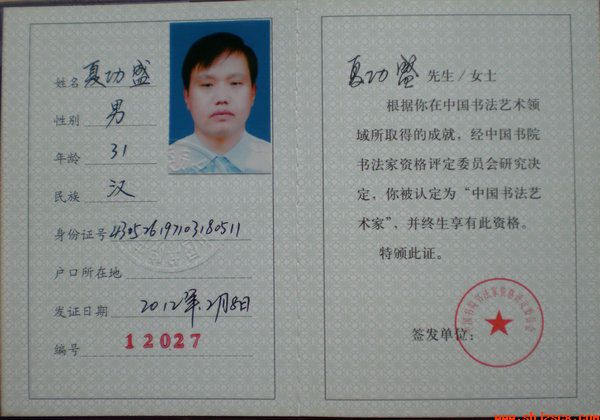 姓名 夏功盛
性别 男
年龄 31
民族 汉
身份证号 430526197103180511
户口所在地
发证日期 2012年2月8日
编号 12027
夏功盛 先生/女士
根据你在中国书法艺术领
域所取得的成就，经中国书院
书法家资格评定委员会研究决
定，你被认定为“中国书法艺
术家”，并终生享有此资格。
特颁此证。
签发单位：
中国书院书法家资格评定委员会